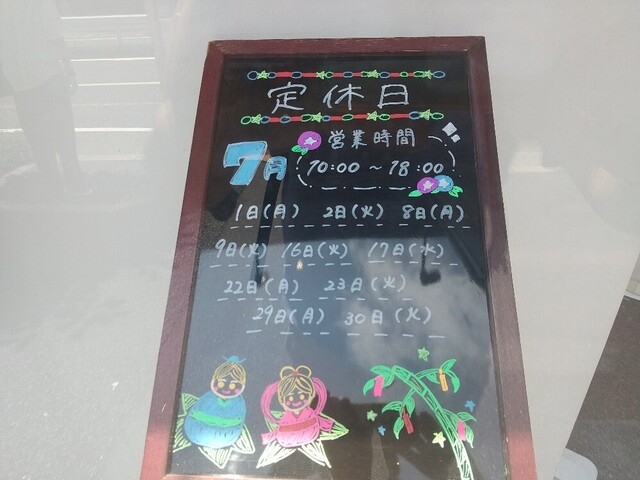 定休日
営業時間
7月 10:00 ~ 18:00
1日(月) 2日(火) 8日(月)
9日(火) 16日(火) 17日(水)
22日(月) 23日(火)
29日(月) 30日(火)